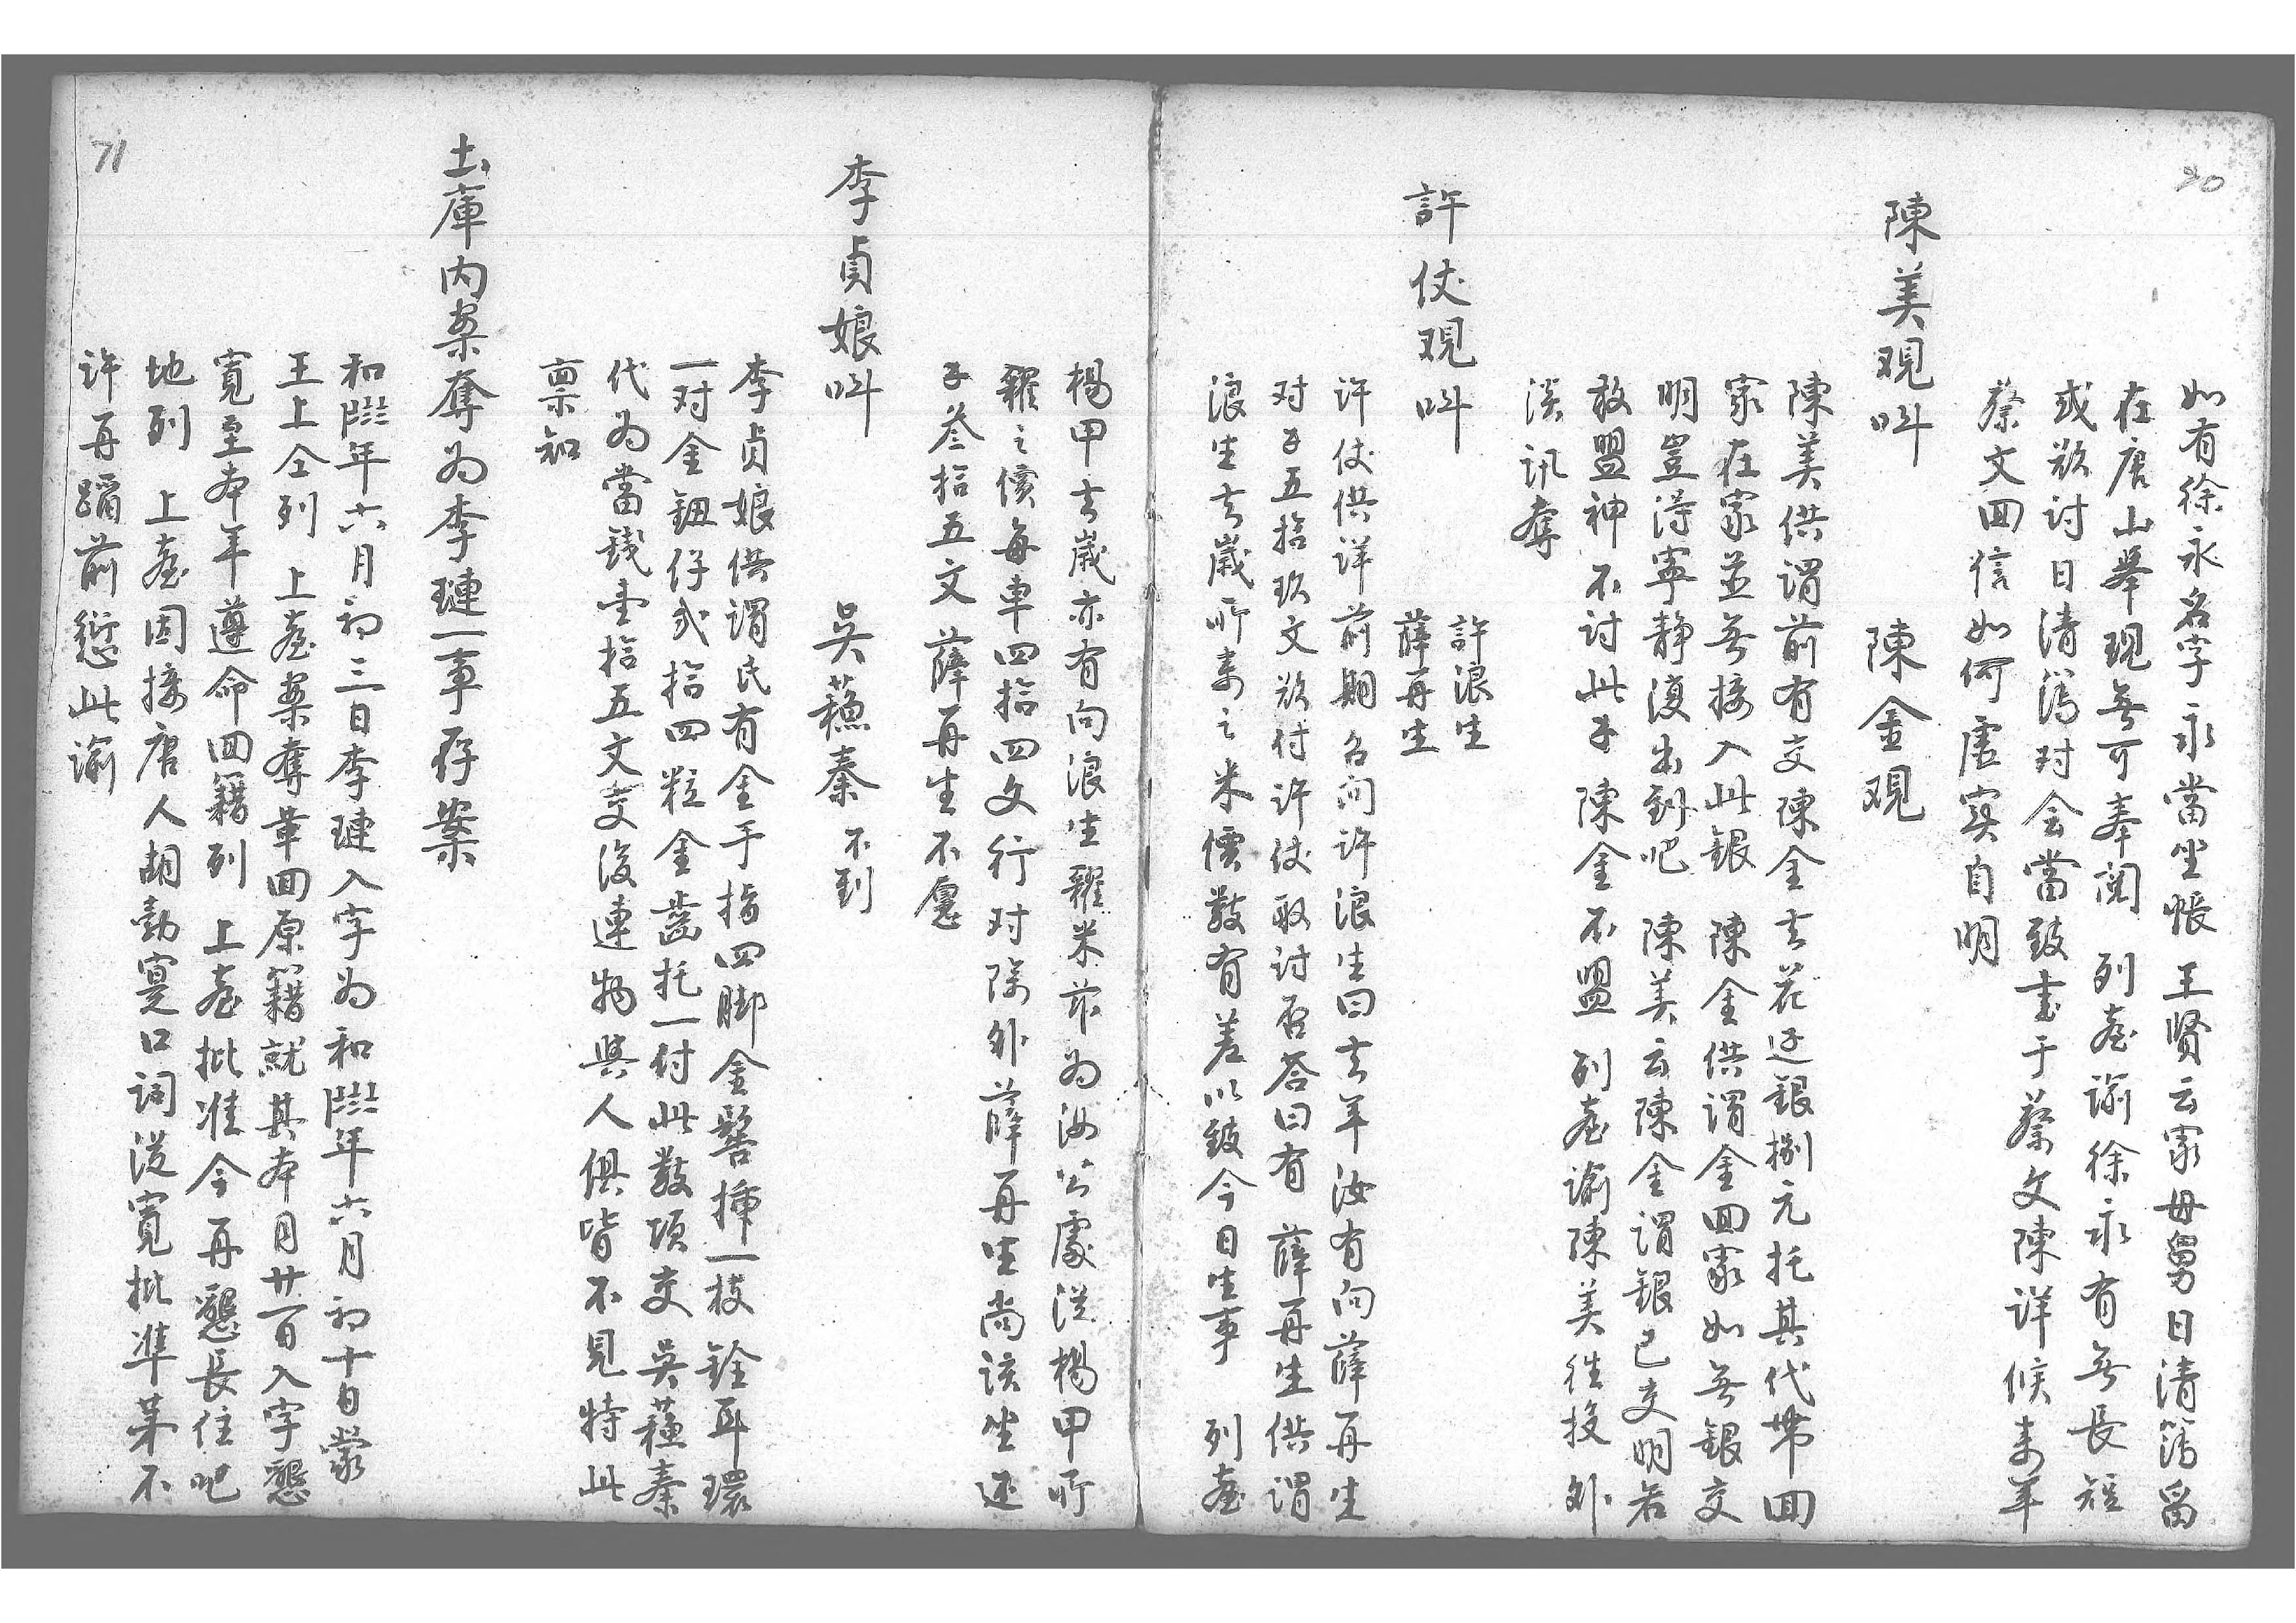 70
如有徐永名字永當坐帳 王賢云家母舅日清簿留
在唐山舉現無可奉閱 列臺諭徐永有無長短
或欲討日清簿对会當致書于蔡文陳详候来年
蔡文囬信如何虛实自明
陳美观呌 陳金观
陳美供謂前有交陳金去花边銀捌元托其代帶囬
家在家並無接入此銀 陳金供謂金囬家如無銀交
明豈淂寧静復出到吧 陳美云陳金謂銀已交明若
敢盟神不討此子陳金不盟 列臺諭陳美徃投外
淡訊奪
許伏观呌 許浪生
薛再生
许伏供详前期召问许浪生曰去年汝有向薛再生
对子五拾玖文欲付许伏取討否答曰有 薛再生供謂
浪生去歲所来之米價数有差以致今日生事 列臺
楊甲去歲亦有向浪生糴米芣为汝公處従楊甲所
糴之價每車四拾四文行对除外薛再生尚该坐还
子叁拾五文 薛再生不愿
李貞娘呌 吳蘓秦 不到
李貞娘供謂氏有金手指四脚金髻揷一枝 銓耳環
一对金鈕仔弍拾四粒金齒托一付此数項交吳蘓秦
代为當錢壹拾五文交後連物與人俱皆不見特此
禀知
土庫內案奪为李璉一事存案
和年六月初三日李璉入字为和年六月初十日蒙
王上仝列 上臺案奪革囬原籍就其本月廿一日入字懇
寬至本年遵命囬籍列 上臺批准今再懇長住吧
地列 上臺因接唐人甜勃寔口詞従寬批準苐不
许再蹈前愆此谕
71